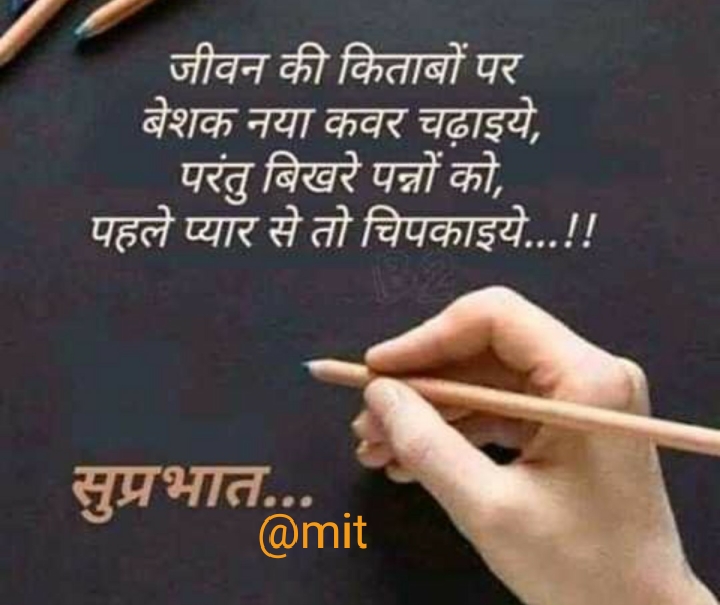 जीवन की किताबों पर
बेशक नया कवर चढ़ाइये,
परंतु बिखरे पन्नों को,
पहले प्यार से तो चिपकाइये...!!
सुप्रभात...
@mit